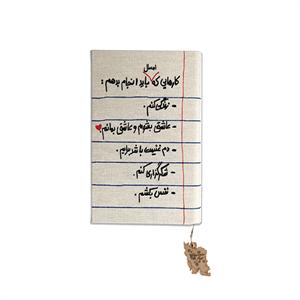 امسال
کارهایی که باید انجام بدهم :
- زندگی کنم.
- عاشق بشوم و عاشق بمانم.
- دم غنیمت باشمارم.
- شکرگزاری کنم.
- نفس بکشم.